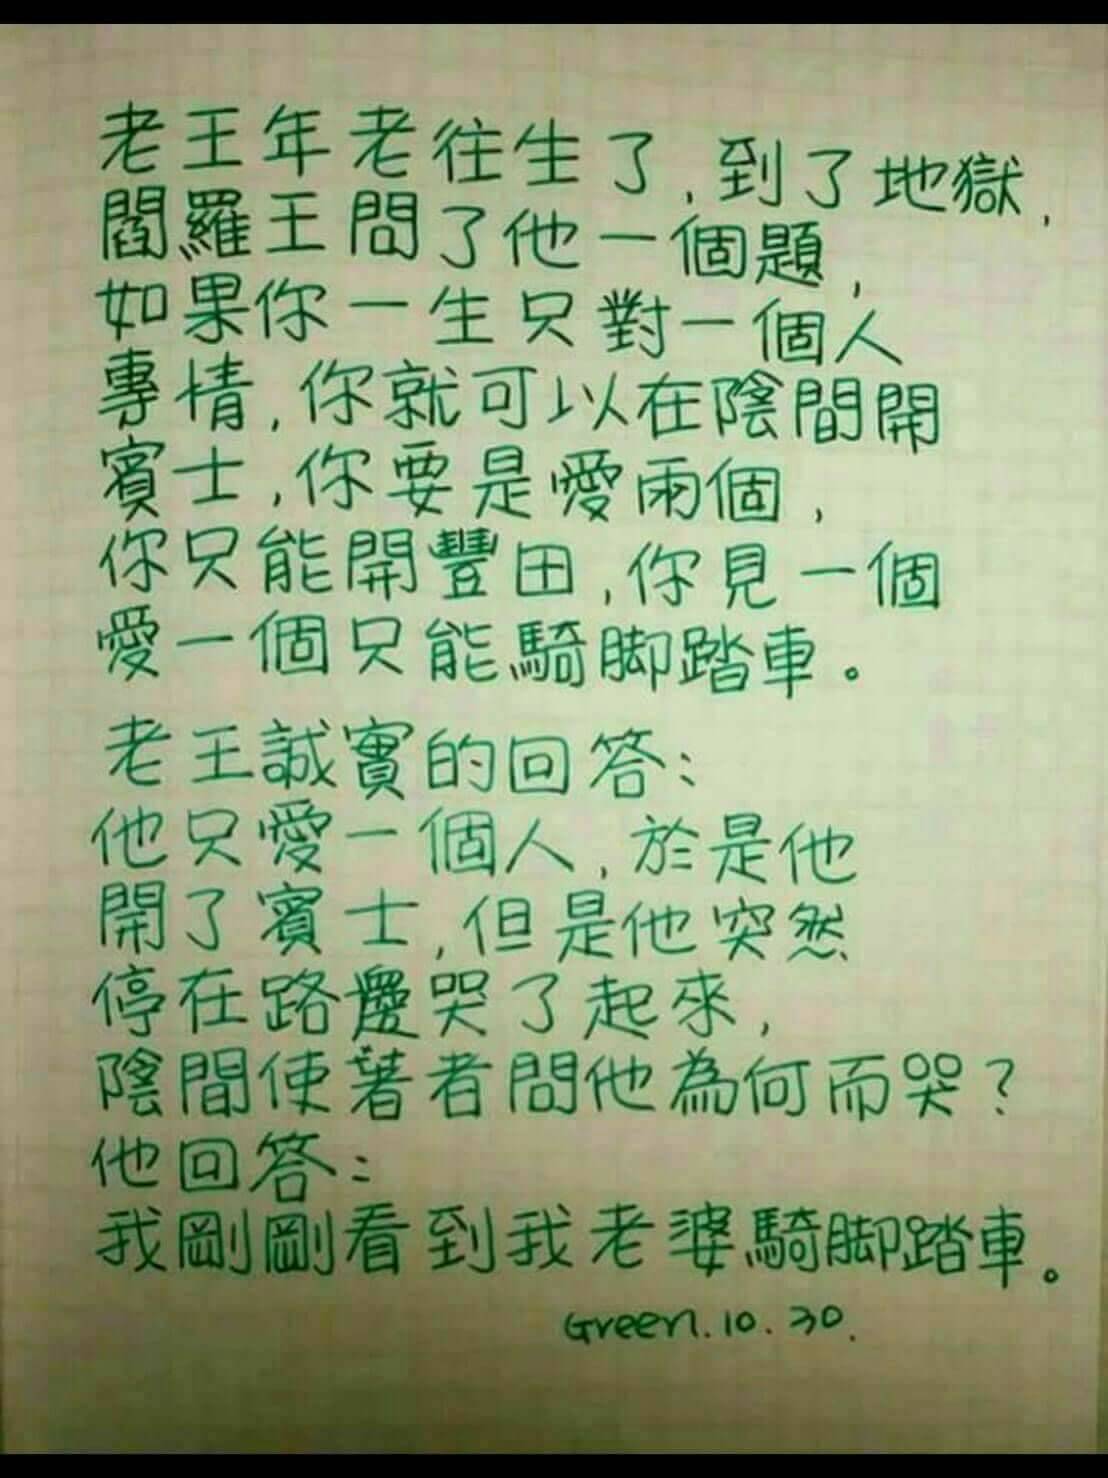 老王年老往生了,到了地獄,
閻羅王問了他一個題,
如果你一生只對一個人
專情,你就可以在陰間開
賓士,你要是愛兩個,
你只能開豐田,你見一個
愛一個只能騎脚踏車。
老王誠實的回答:
他只愛一個人,於是他
開了賓士,但是他突然
停在路邊哭了起來,
陰間使著者問他為何而哭?
他回答:
我剛剛看到我老婆騎脚踏車。
Green.10.30.